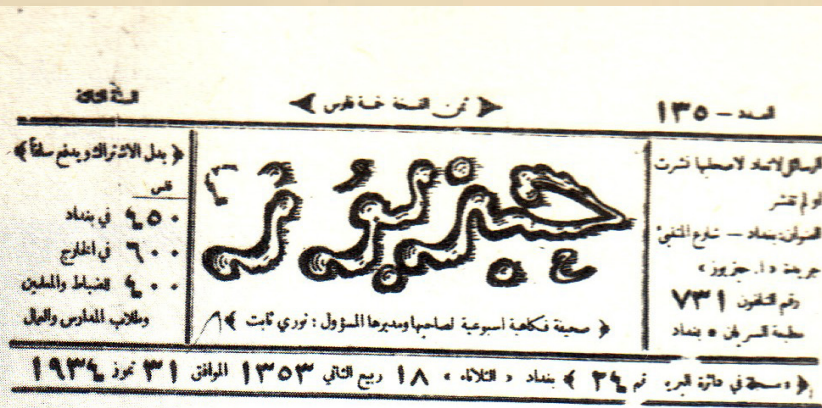 العدد — ١٣٥
﴿ ثمن النسخة خمسة فلوس ﴾
السنة الثالثة
الرسائل لا تعاد لاصحابها نشرت
او لم تنشر
العنوان: بغداد — شارع المتنبي
جريدة «ا. حبزبوز»
رقم التلفون ٧٣١
مطبعة السريان ٥ بغداد
حبزبوز
﴿ صحيفة فكاهية اسبوعية لصاحبها ومديرها المسؤول : نوري ثابت ﴾
﴿ بدل الاشتراك ويدفع سلفاً ﴾
فلس
٤٥٠ في بغداد
٦٠٠ في الخارج
٤٠٠ للضباط والمعلمين
وطلاب المدارس والعمال
﴿ مسجلة في دائرة البريد نم ٢٤ ﴾ بغداد « الثلاثاء » ١٨ ربيع الثاني ١٣٥٣ الموافق ٣١ تموز ١٩٣٤